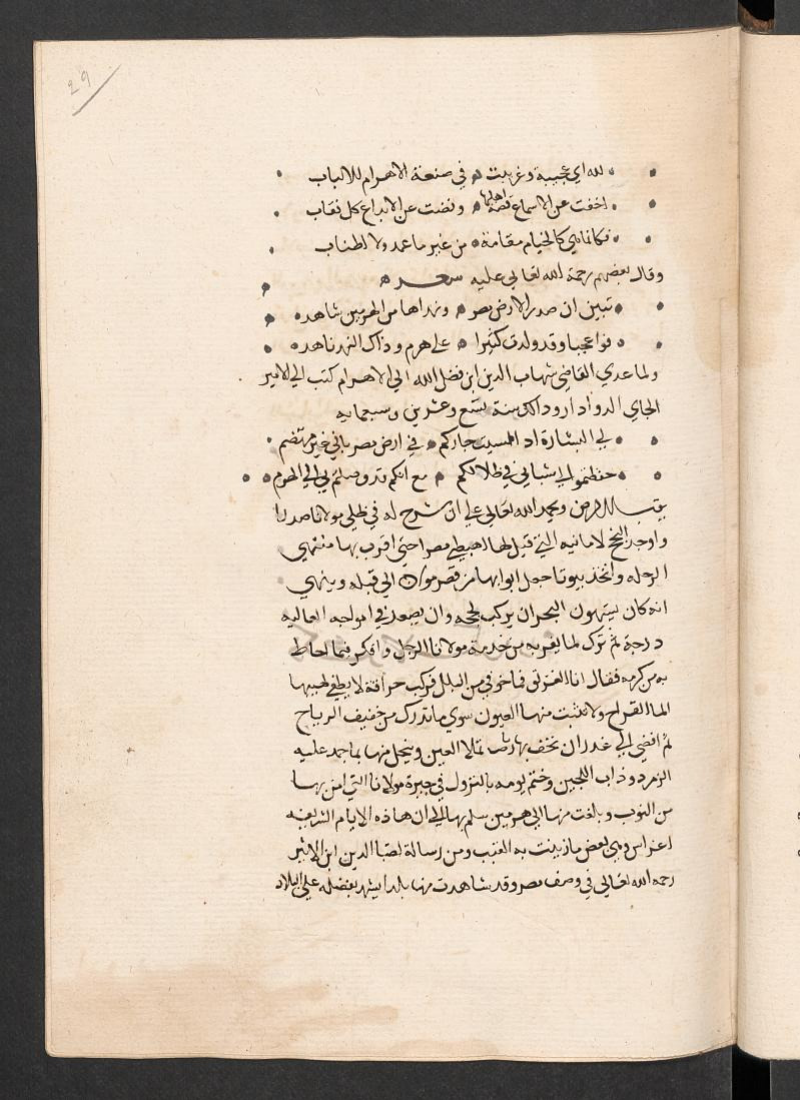 29
لله اي عجيبة وغريبة في صنعة الاهرام للالباب
اخفت عن الاسماع قصة اهلها ونضت عن الابداع كل نقاب
فكانما هي كالخيام مقامة من غير ما عمد ولا اطناب
وقال بعضهم رحمة الله تعالي عليه شعر
تبين ان صدر الارض مصر ونهداها من الهرمين شاهد
فواعجبا وقد ولدت كثيرا علي هرم وذاك النهد ناهد
ولما عدي القاضي شهاب الدين ابن فضل الله الي الاهرام كتب الي الامير
الجاي الدوادار وذالك سنة تسع وعشرين وسبعمايه
لي البشارة اذ امسيت جاركم في ارض مصر باني غير مهتضم
حفظتموا لي شبابي في ظلالكم مع انكم قد وصلتم بي الي الهرم
يقبل الارض ويحمد الله تعالي علي ان شرح له في ظل مولانا صدرا
واوجد النجح لامانيه التي قيل لها اهبطي مصرا حتي اقرب بها منتهي
الرحله واتخذ بيوتا جعل ابوابها من قصر الي قبله وينهي
انه كان يستهون البحر ان يركب لججه وان يصعد في امواجه العاليه
درجة ثم ترك لما يغربه من خدمة مولانا الرجل وافكر فيما احاط
به من كرمه فقال انا الغريق فما خوفي من البلل فركب حراقة لا يطفي لهيبها
الماء القراح ولا تثبت منها العيون سوي ما تدرك من خفيف الرياح
ثم افضي الي غدران تحف بها رياض تملا العين ويخل منها بما جمد عليه
الزمرد وذاب اللجين وختم يومه بالنزول في جيرة مولانا التي امن بها
من النوب وبلغت منها الي هرمين سلم بها الي ان هاذه الايام الشريفه
اعراس وهي بعض ما زينت به ومن رسالة لضيا الدين ابن الاثير
رحمه الله تعالي في وصف مصر وقد شاهدت منها بلدا يشهد بفضله علي البلاد